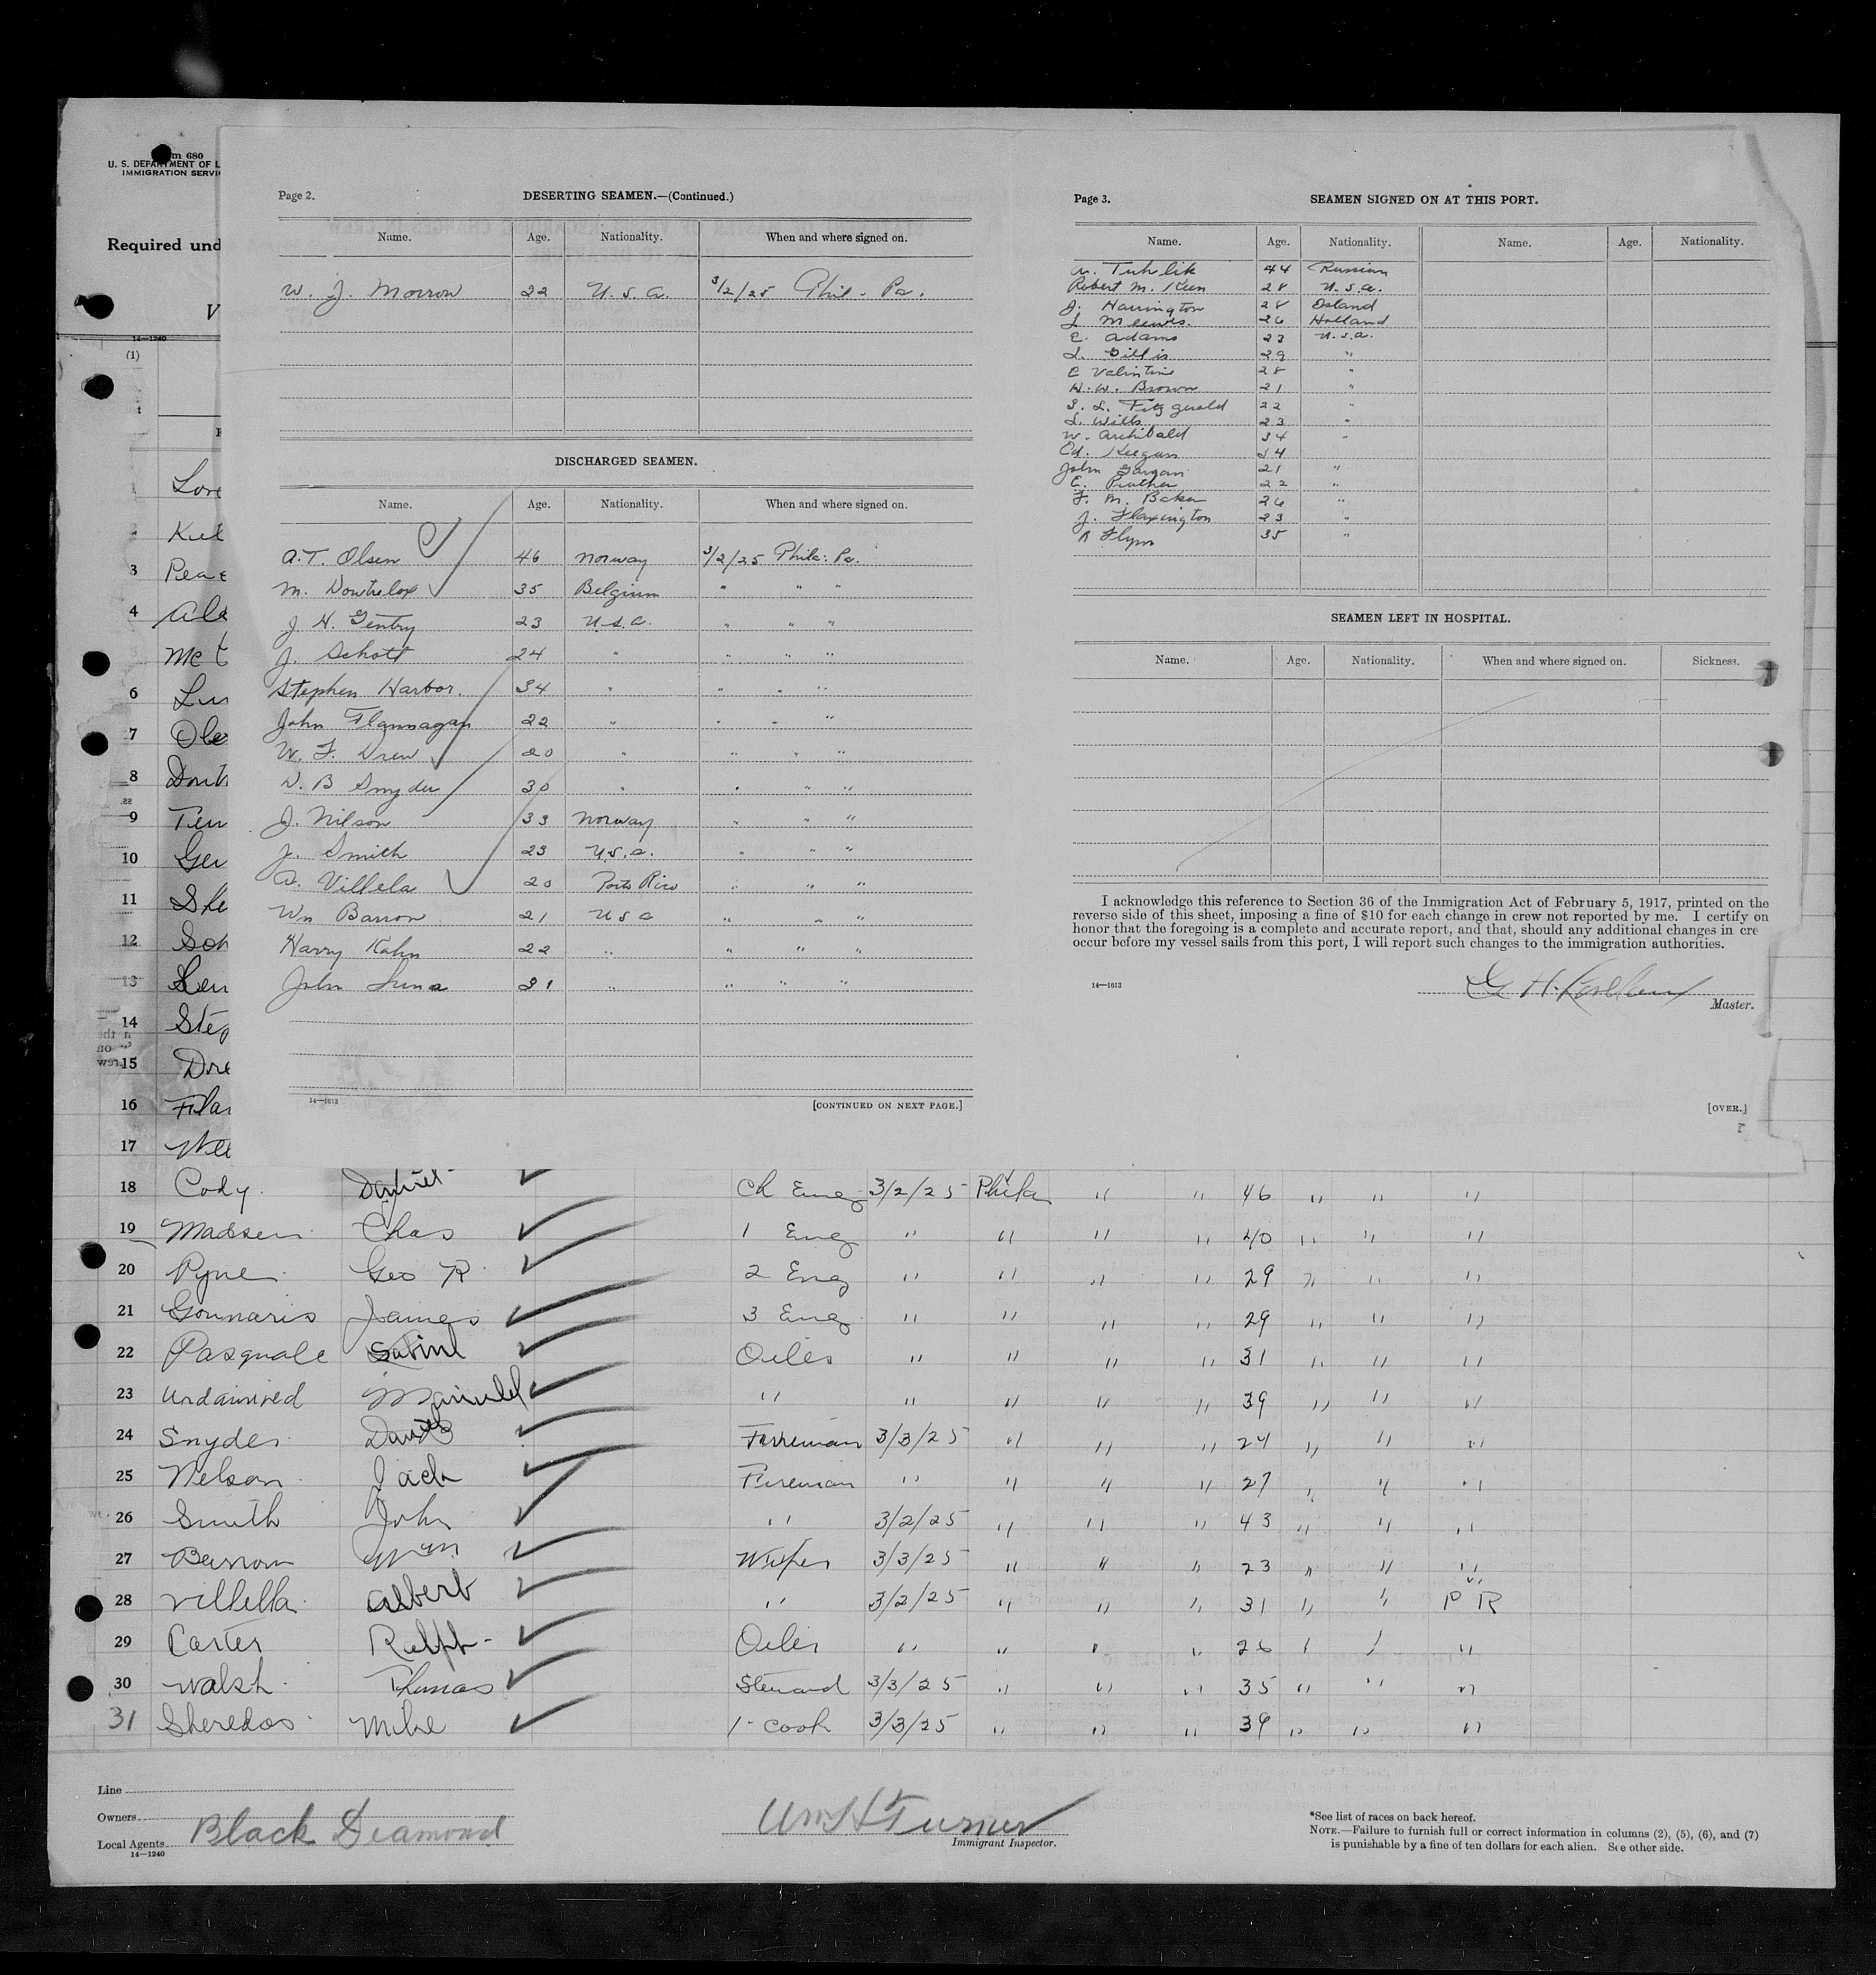 m 680
U. S. DEPARTMENT OF L
IMMIGRATION SERVI
Required und
V
14—1240
(1)
Page 2.
DESERTING SEAMEN.—(Continued.)
Name. Age. Nationality. When and where signed on.
W. J. Morrow 22 U.S.A. 3/2/25 Phil. Pa.
DISCHARGED SEAMEN.
Name. Age. Nationality. When and where signed on.
A.T. Olsen 46 Norway 3/2/25 Phila. Pa.
M. 35 Belgium " "
J. H. Gentry 23 U.S.A. " " "
J. Schott 24 " " " "
Stephen Harbor. 34 " " " "
John Flannagan 22 " " " "
W. F. Drew 20 " " " "
D. B Smyder 30 " " " "
J. Nilson 33 Norway " " "
J. Smith 23 U.S.A. " " "
A. Villela 20 Porto Rico " " "
Wm Barron 21 U S A " " "
Harry Kahn 22 " " " "
John 31 " " " "
14—1613
[CONTINUED ON NEXT PAGE.]
Page 3.
SEAMEN SIGNED ON AT THIS PORT.
Name. Age. Nationality. Name. Age. Nationality.
44 Russian
Robert M. Keen 28 U.S.A.
J. Harrington 28
26 Holland
E. Adams 22 U.S.A.
L. Gillis 29 "
E Valintine 28 "
H. W. Brown 21 "
S. L. Fitzgerald 22 "
L. Wills 23 "
W. Archibald 34 "
Ed. Keegan 34
John Gargan 21 "
E. Prather 22 "
F. M. Baker 26 "
J. Flaxington 23 "
R Flynn 35 "
SEAMEN LEFT IN HOSPITAL.
Name. Age. Nationality. When and where signed on. Sickness.
I acknowledge this reference to Section 36 of the Immigration Act of February 5, 1917, printed on the
reverse side of this sheet, imposing a fine of $10 for each change in crew not reported by me. I certify on
honor that the foregoing is a complete and accurate report, and that, should any additional changes in cre
occur before my vessel sails from this port, I will report such changes to the immigration authorities.
14—1613
G H
Master.
[OVER.]
Lore
Kul
3 Peac
4 Ale
Mc
6 Lun
7 Ole
8 Dout
9 Ten
10 Ger
11 She
12 Sch
13 Sen
14 Step
15 Dre
16 Flan
17 Wel
18 Cody Daniel Ch Eng 3/2/25 Phila " " 46 " " "
19 Madsen Chas 1 Eng " " " " 40 " " "
20 Pyne Geo R 2 Eng " " " " 29 " " "
21 Gounaris James 3 Eng " " " " 29 " " "
22 Pasquale Sabine Oiler " " " " 31 " " "
23 Manuel " " " " " 39 " " "
24 Snyder David Fireman 3/3/25 " " " 24 " " "
25 Nelson Jack Fireman " " " " 27 " " "
26 Smith John " 3/2/25 " " " 43 " " "
27 Barrow Wm Wiper 3/3/25 " " " 23 " " "
28 Villella Albert " 3/2/25 " " " 31 " " P R
29 Carter Ralph Oiler " " " " 26 " " "
30 Walsh Thomas Steward 3/3/25 " " " 35 " " "
31 Sheredos Mike 1 cook 3/3/25 " " " 39 " " "
Line
Owners
Local Agents Black Diamond
14—1240
Wm H Turner
Immigrant Inspector.
*See list of races on back hereof.
NOTE.—Failure to furnish full or correct information in columns (2), (5), (6), and (7)
is punishable by a fine of ten dollars for each alien. See other side.